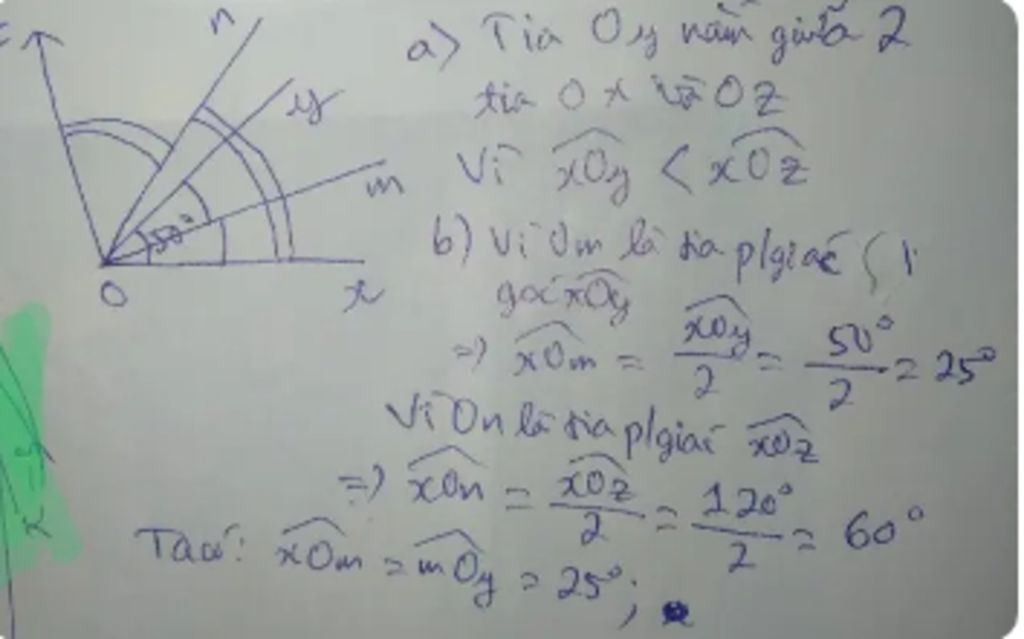 n
y
m
50°
O
x
a) Tia Oy nằm giữa 2
tia Ox và Oz
Vì xOy < xOz
b) Vì Om là tia p/giác
góc xOy
=> xOm = xOy/2 = 50°/2 = 25°
Vì On là tia p/giác xOz
=> xOn = xOz/2 = 120°/2 = 60°
Ta có: xOm = mOy = 25°;